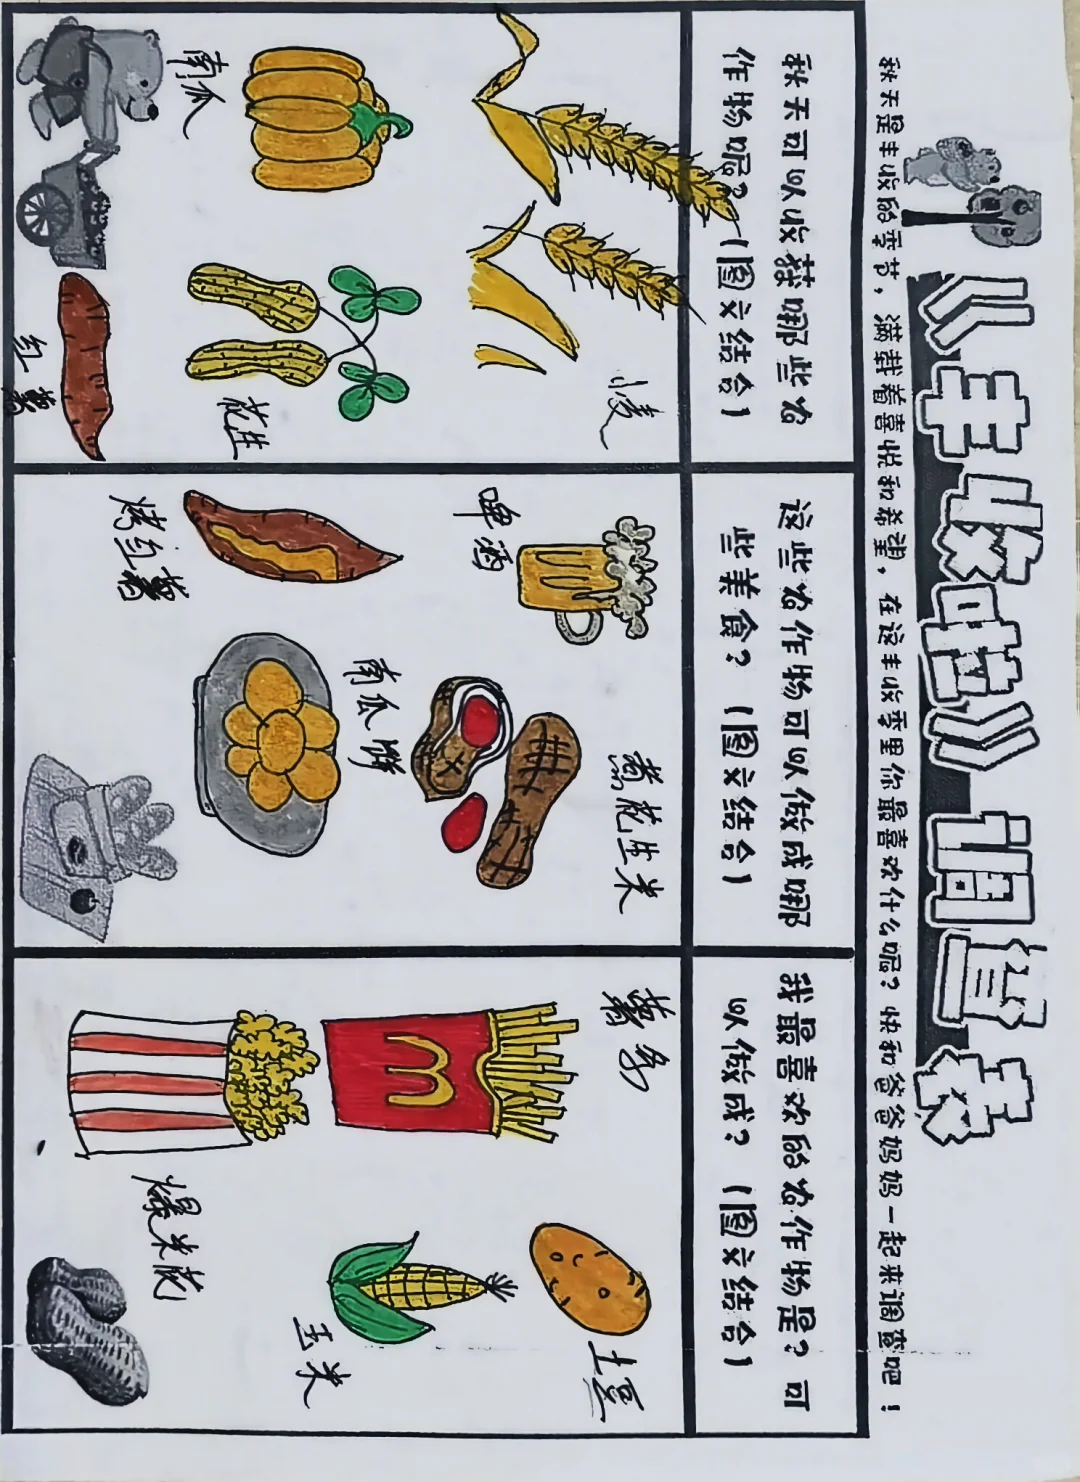 《丰收啦》调查表
秋天是丰收的季节，满载着喜悦和希望。在这丰收季里你最喜欢什么呢？快和爸爸妈妈一起来调查吧！
秋天可以收获哪些农
作物呢？（图文结合）
小麦
南瓜
花生
红薯
这些农作物可以做成哪
些美食？（图文结合）
啤酒
煮花生米
烤红薯
南瓜饼
我最喜欢的农作物是？可
以做成？（图文结合）
薯条
土豆
玉米
爆米花